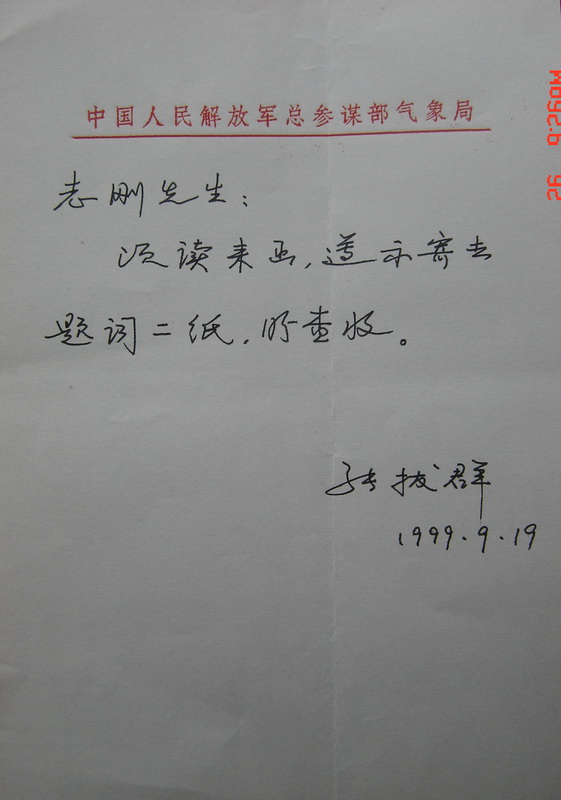 中国人民解放军总参谋部气象局
志刚先生：
顷读来函，遵示寄去
题词二纸，盼查收。
张拔群
1999.9.19